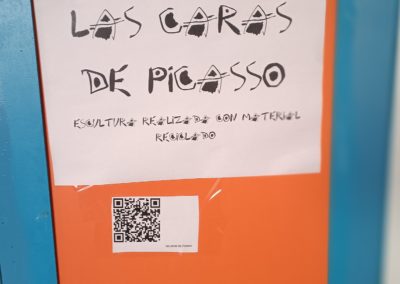 LAS CARAS
DE PICASSO
ESCULTURA REALIZADA CON MATERIAL
RECICLADO